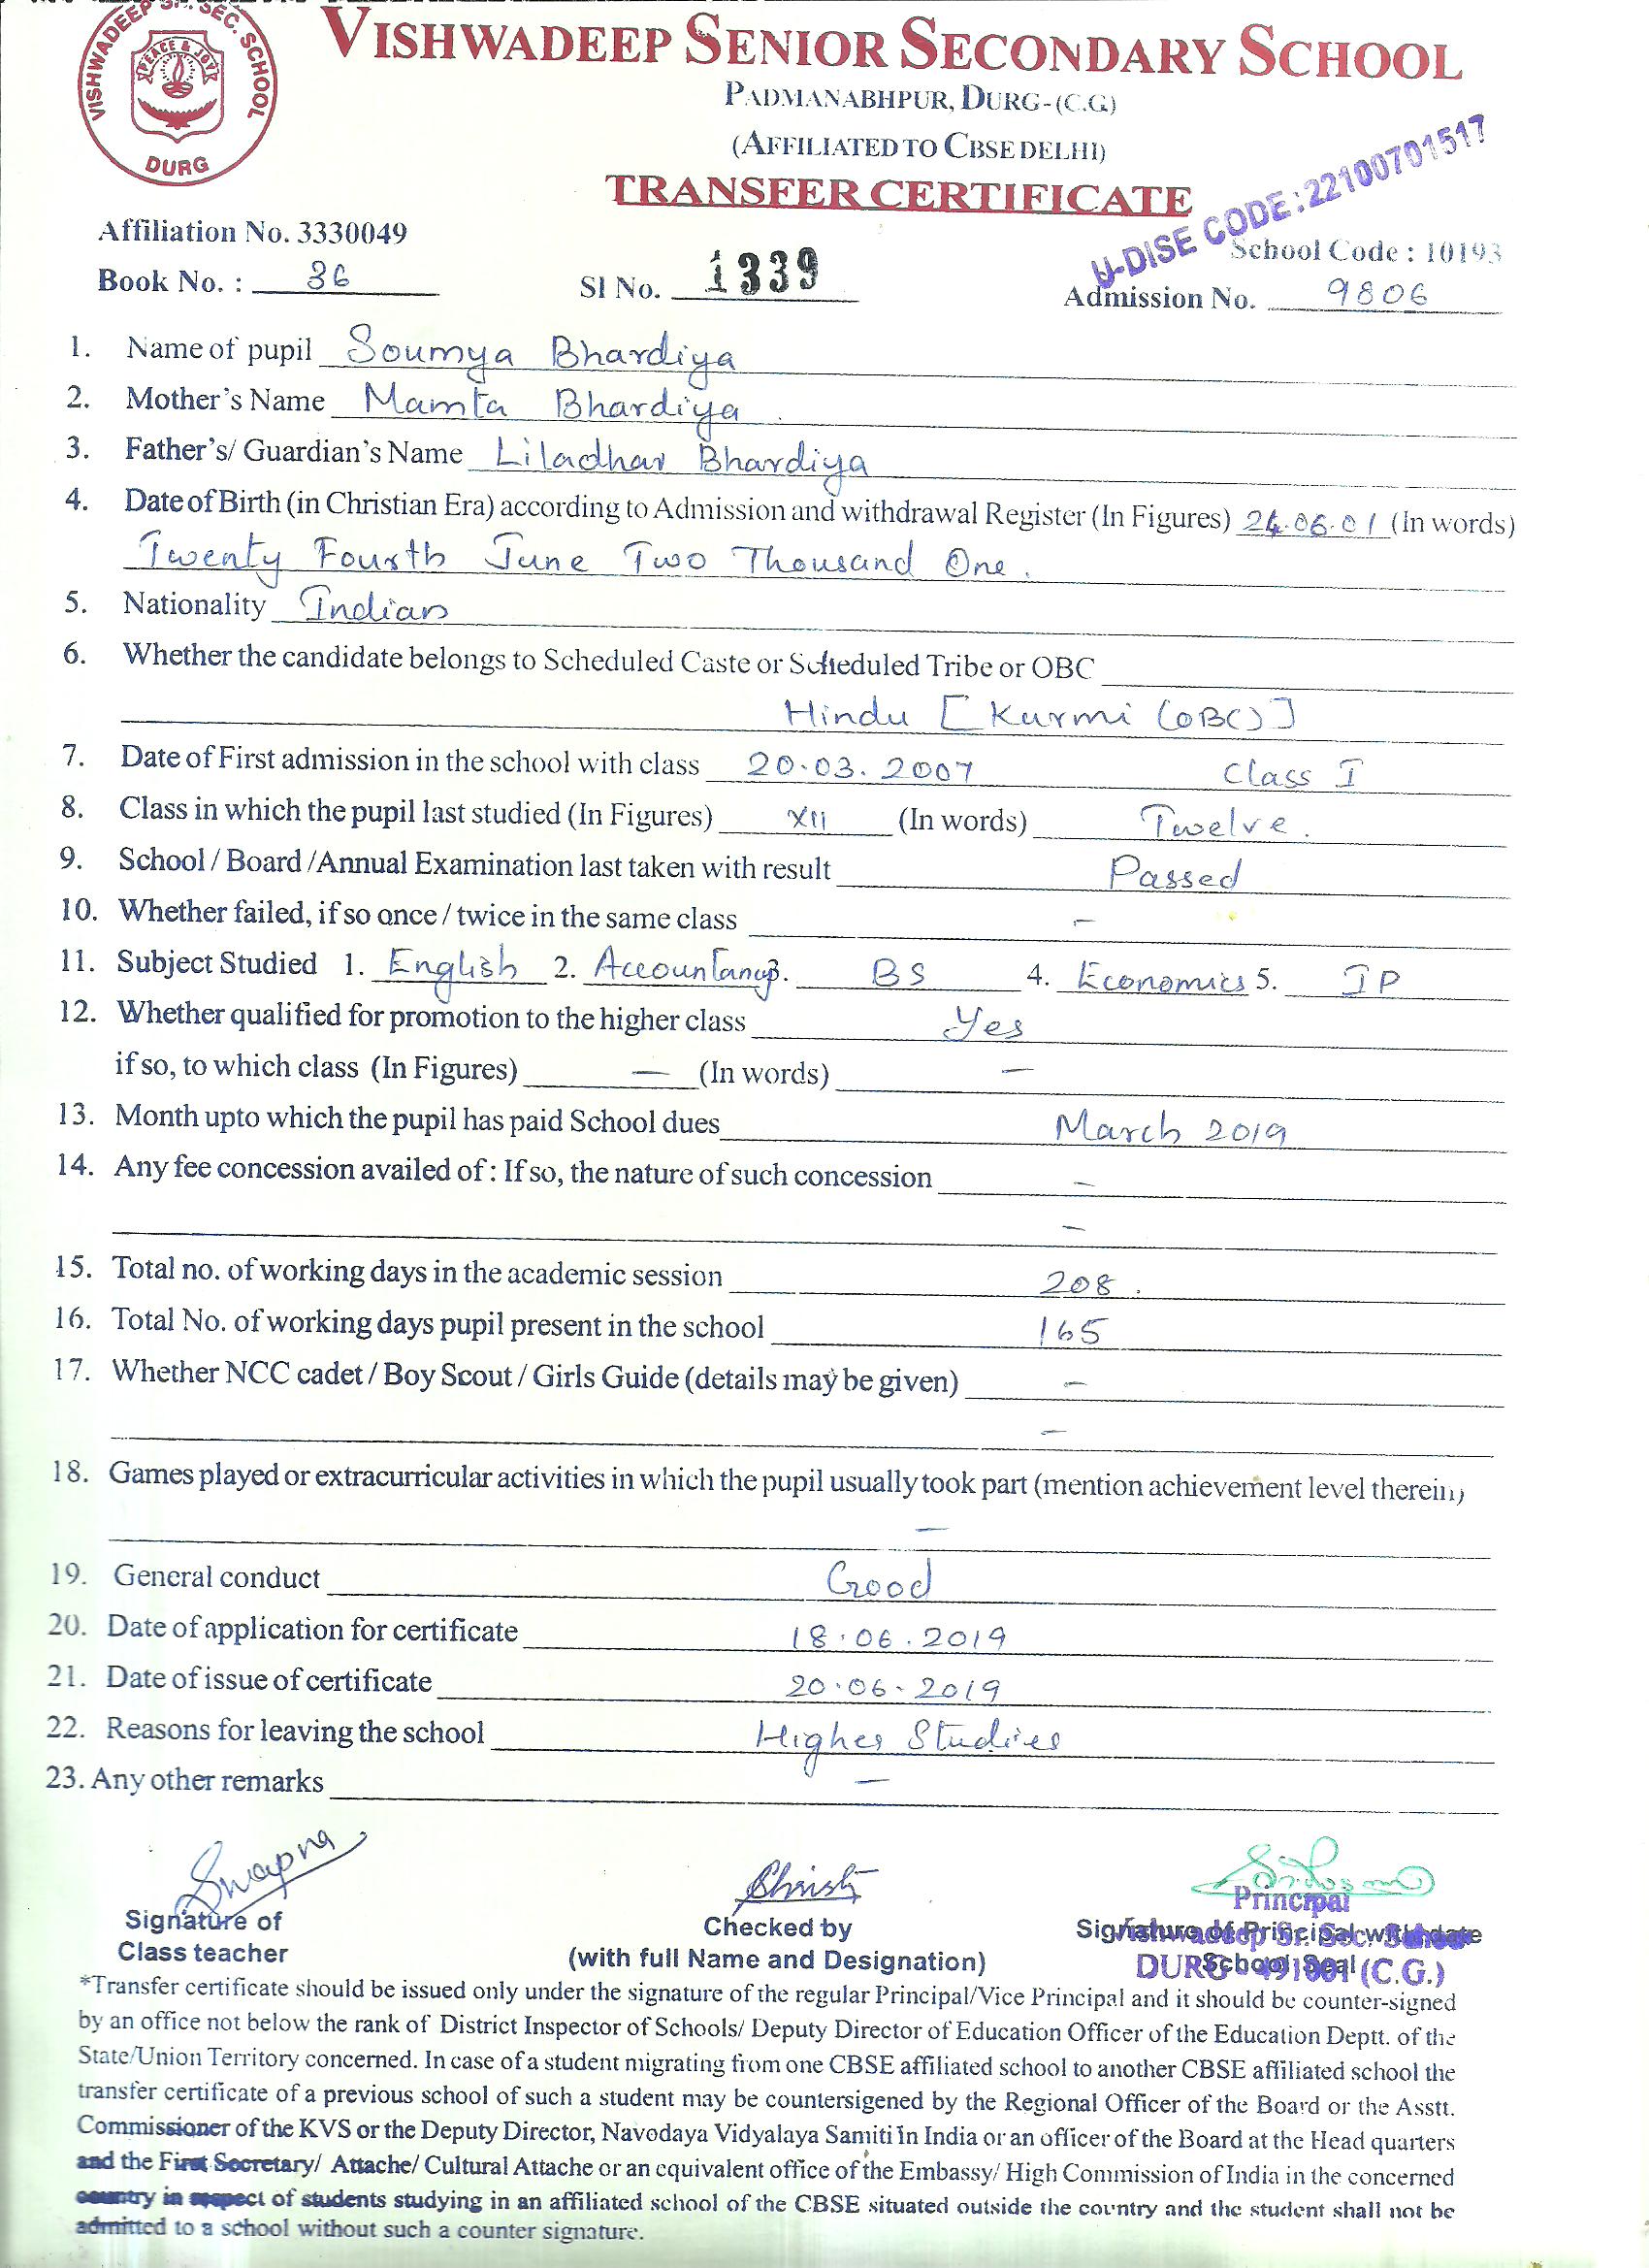 VISHWADEEP SR. SEC. SCHOOL
PEACE & JOY
DURG
VISHWADEEP SENIOR SECONDARY SCHOOL
PADMANABHPUR, DURG-(C.G.)
(AFFILIATED TO CBSE DELHI)
TRANSFER CERTIFICATE
U-DISE CODE: 22100701517
Affiliation No. 3330049
School Code : 10193
Book No. : 36 Sl No. 1339 Admission No. 9806
1. Name of pupil Soumya Bhardiya
2. Mother's Name Mamta Bhardiya
3. Father's/ Guardian's Name Liladhar Bhardiya
4. Date of Birth (in Christian Era) according to Admission and withdrawal Register (In Figures) 24.06.01 (In words)
Twenty Fourth June Two Thousand One.
5. Nationality Indian
6. Whether the candidate belongs to Scheduled Caste or Scheduled Tribe or OBC
Hindu [Kurmi (OBC)]
7. Date of First admission in the school with class 20.03.2007 Class I
8. Class in which the pupil last studied (In Figures) XII (In words) Twelve.
9. School / Board /Annual Examination last taken with result Passed
10. Whether failed, if so once / twice in the same class –
11. Subject Studied 1. English 2. Accountancy 3. BS 4. Economics 5. IP
12. Whether qualified for promotion to the higher class Yes
if so, to which class (In Figures) – (In words) –
13. Month upto which the pupil has paid School dues March 2019
14. Any fee concession availed of : If so, the nature of such concession –
–
15. Total no. of working days in the academic session 208.
16. Total No. of working days pupil present in the school 165
17. Whether NCC cadet / Boy Scout / Girls Guide (details may be given) –
–
18. Games played or extracurricular activities in which the pupil usually took part (mention achievement level therein)
–
19. General conduct Good
20. Date of application for certificate 18.06.2019
21. Date of issue of certificate 20.06.2019
22. Reasons for leaving the school Higher Studies
23. Any other remarks –
Swapna
Signature of
Class teacher
Christi
Checked by
(with full Name and Designation)
Principal
Signature of Principal with date
Vishwadeep Sr. Sec. School
School Seal
DURG - 491001 (C.G.)
*Transfer certificate should be issued only under the signature of the regular Principal/Vice Principal and it should be counter-signed
by an office not below the rank of District Inspector of Schools/ Deputy Director of Education Officer of the Education Deptt. of the
State/Union Territory concerned. In case of a student migrating from one CBSE affiliated school to another CBSE affiliated school the
transfer certificate of a previous school of such a student may be countersigened by the Regional Officer of the Board or the Asstt.
Commissioner of the KVS or the Deputy Director, Navodaya Vidyalaya Samiti in India or an officer of the Board at the Head quarters
and the First Secretary/ Attache/ Cultural Attache or an equivalent office of the Embassy/ High Commission of India in the concerned
country in respect of students studying in an affiliated school of the CBSE situated outside the country and the student shall not be
admitted to a school without such a counter signature.